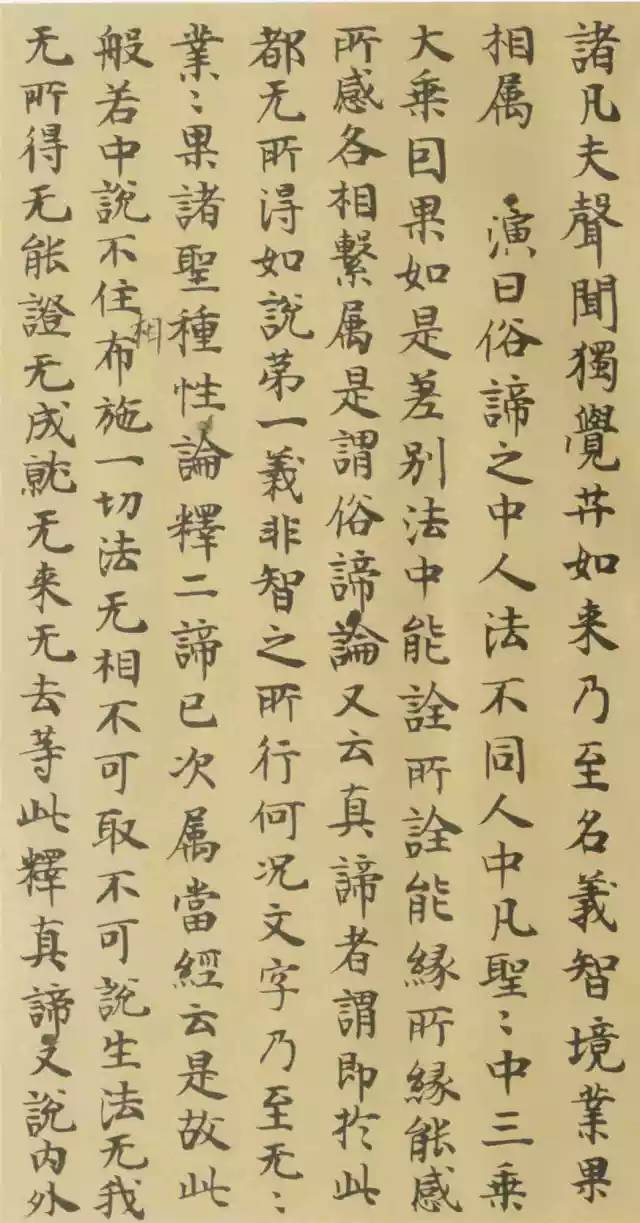 諸凡夫聲聞獨覺𦬇如来乃至名義智境業果
相属　演曰俗諦之中人法不同人中凡聖〻中三乗
大乗因果如是差别法中能詮所詮能縁所縁能感
所感各相繫属是謂俗諦論又云真諦者謂即扵此
都无所得如說苐一義非智之所行何况文字乃至无〻
業〻果諸聖種性論釋二諦已次属當經云是故此
般若中說不住相布施一切法无相不可取不可說生法无我
无所得无能證无成就无来无去等此釋真諦又說内外